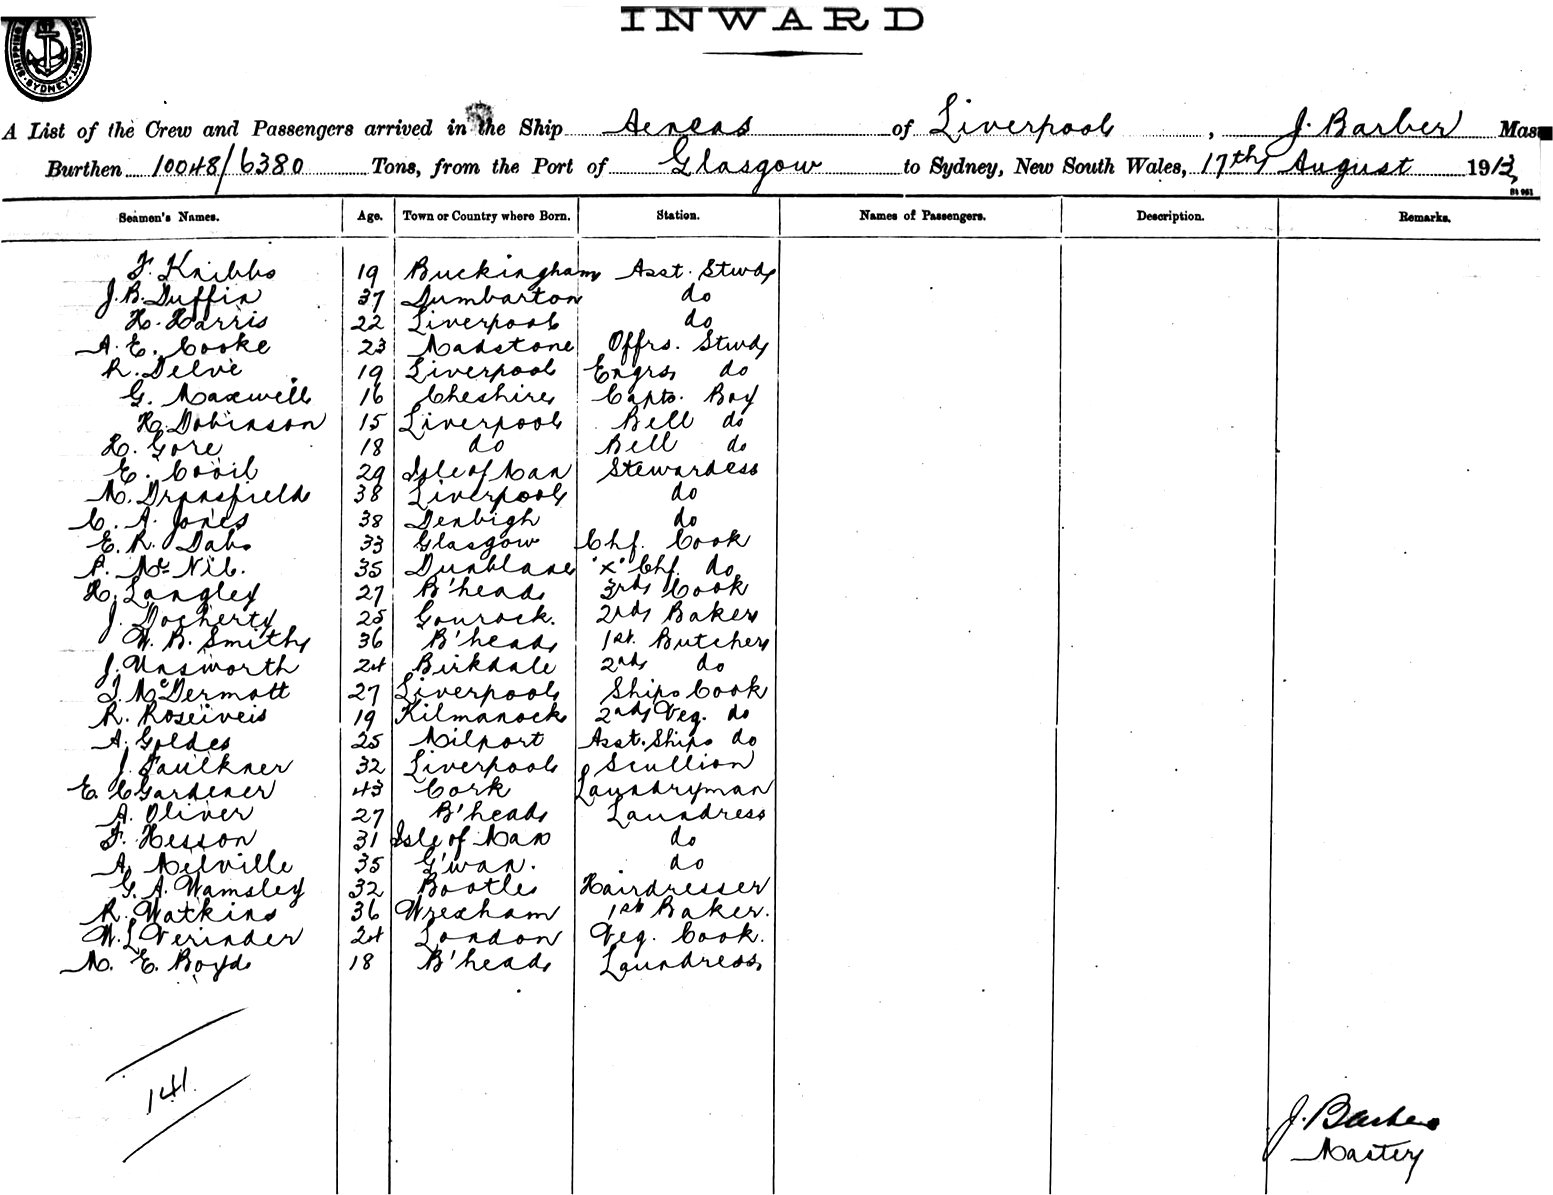 INWARD
SHIPPING DEPARTMENT SYDNEY
A List of the Crew and Passengers arrived in the Ship Aeneas of Liverpool, J. Barber Mas
Burthen 10048/6380 Tons, from the Port of Glasgow to Sydney, New South Wales, 17th August 1913
Seamen's Names. Age. Town or Country where Born. Station. Names of Passengers. Description. Remarks.
F. Knibbs 19 Buckingham Asst. Stwd
J. B. Duffin 37 Dumbarton do
H. Harris 22 Liverpool do
A. E. Cooke 23 Madstone Offrs. Stwd
R. Delve 19 Liverpool Engrs do
G. Maxwell 16 Cheshire Capts. Boy
H. Dobinson 15 Liverpool Bell do
H. Gore 18 do Bell do
E. Cooil 29 Isle of Man Stewardess
M. Dransfield 38 Liverpool do
C. A. Jones 38 Denbigh do
E. R. Dabs 33 Glasgow Chf. Cook
P. Mc Nib. 35 Dunblane "x" Chf. do
H. Langley 27 B'head 3rd Cook
J. Docherty 25 Gourock. 2nd Baker
W. B. Smith 36 B'head 1st. Butcher
J. Unsworth 24 Birkdale 2nd do
J. McDermott 27 Liverpool Ships Cook
R. Roseiveis 19 Kilmanock 2nd Veg. do
A. Goldes 25 Milport Asst. Ships do
J. Faulkner 32 Liverpool Scullion
E. C Gardener 43 Cork Laundryman
A. Oliver 27 B'head Laundress
F. Hesson 31 Isle of Man do
A. Melville 35 G'wan. do
G. A. Wamsley 32 Bootle Hairdresser
R. Watkins 36 Wrexham 1st Baker.
W. L Verinder 24 London Veg. Cook.
M. E. Boyd 18 B'head Laundress
141.
J. Barber
Master